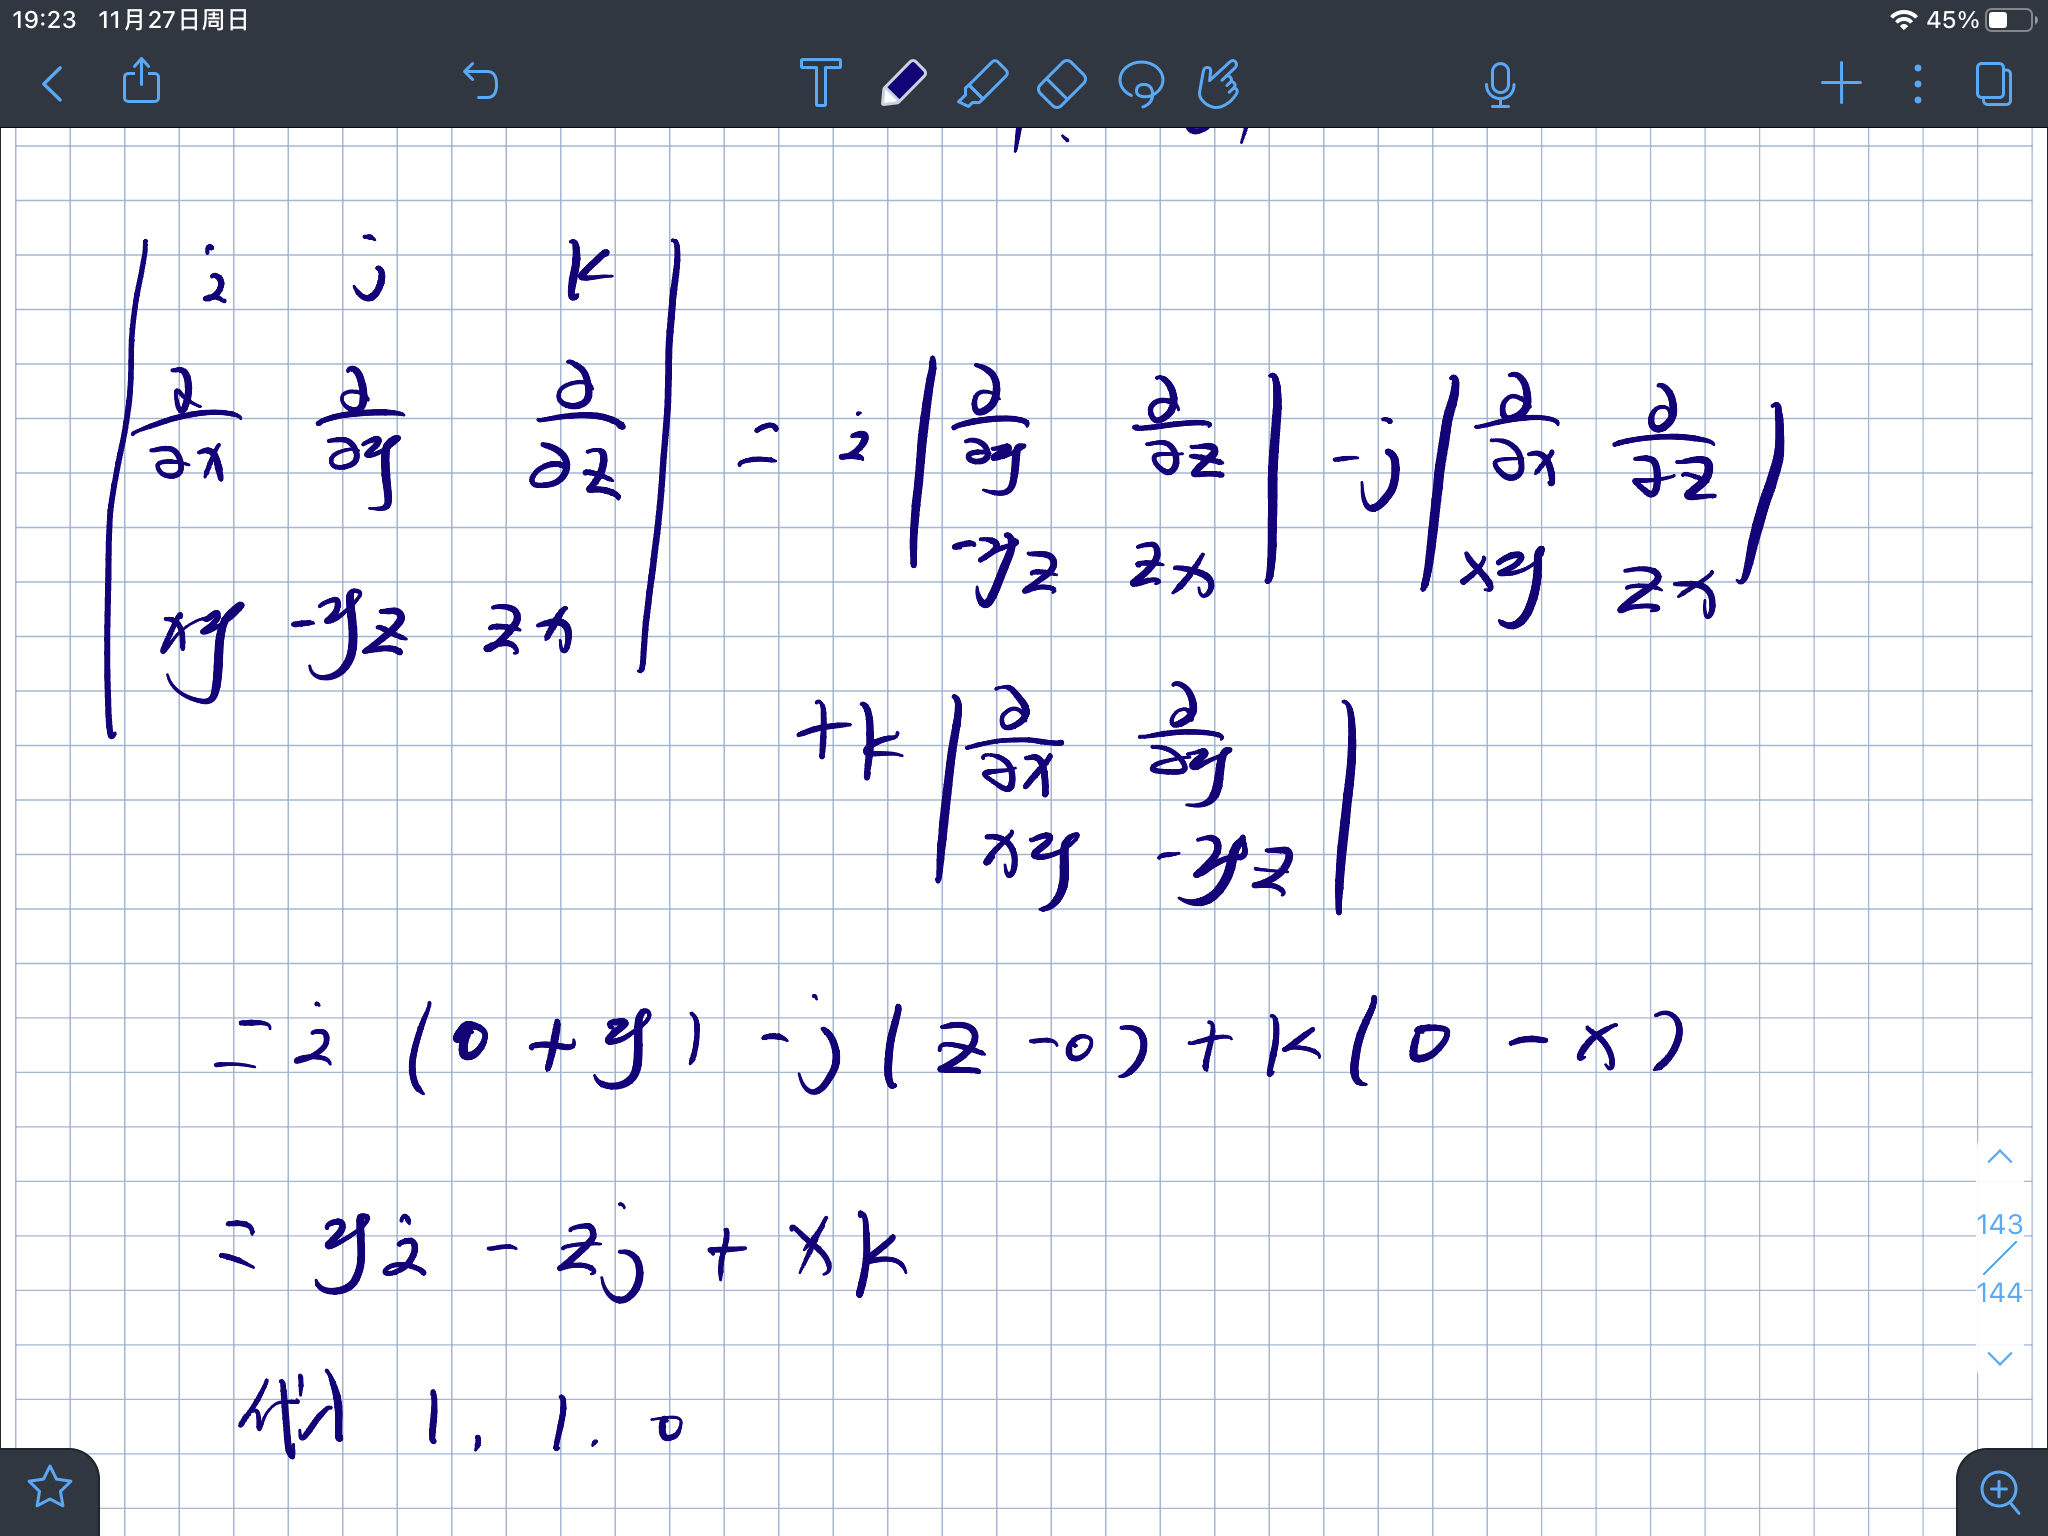 19:23 11月27日周日 45%
| i j k |
| ∂/∂x ∂/∂y ∂/∂z | = i | ∂/∂y ∂/∂z | - j | ∂/∂x ∂/∂z |
| xy -yz zx | | -yz zx | | xy zx |
+k | ∂/∂x ∂/∂y |
| xy -yz |
= i (0 + y) - j (z - 0) + k (0 - x)
= yi - zj + xk
代入 1, 1. 0
143
144